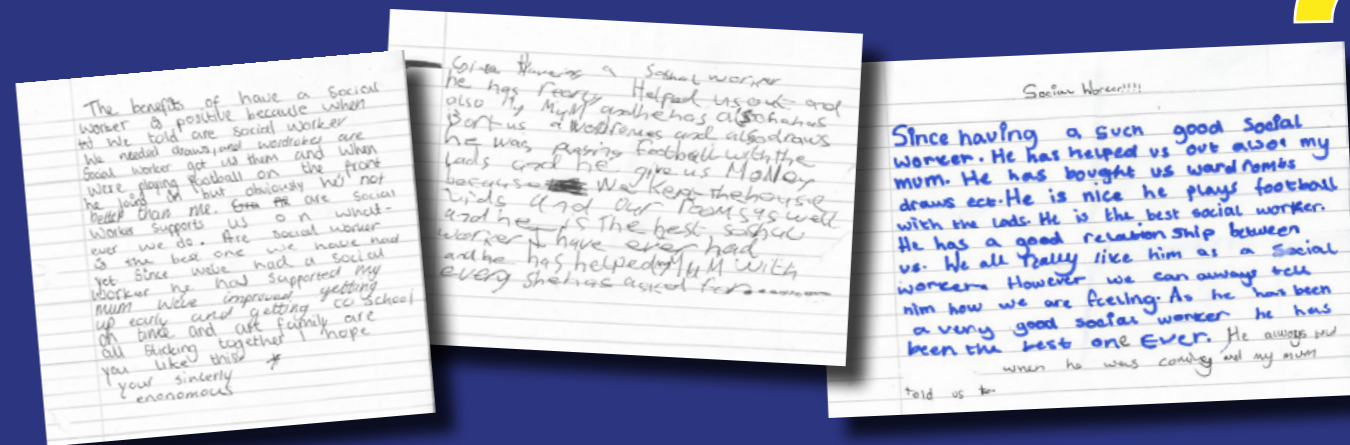 The benefits of have a social
worker is positive because when
we told are social worker
we needed draws, and wardrobes are
Social worker got us them and when
were playing football on the front
he joins in but obviously he's not
better than me. are social
worker supports us on what-
ever we do. Are social worker
is the best one we have had
yet Since weve had a social
worker he has supported my
mum weve improved getting
up early and getting to school
on time and art family are
all sticking together I hope
you like this
your sincerly
enonomous
Haveing a Soshal worker
he has rearly Helped us out and
also My MuM and he has also
Bort us wordromes and also draws
he was playing football with the
lads and he give us Money
because We Keep the house
and our rooms as well
and he is The best soshul
worker I have ever had
and he has helped My MuM with
every she has asked for
Social Worker!!!!
Since having a such good Social
worker. He has helped us out also my
mum. He has bought us wardrombs
draws ect. He is nice he plays football
with the lads. He is the best social worker.
He has a good relationship between
us. We all really like him as a Social
worker. However we can always tell
him how we are feeling. As he has been
a very good social worker he has
been the best one Ever. He always
when he was coming and my mum
told us to